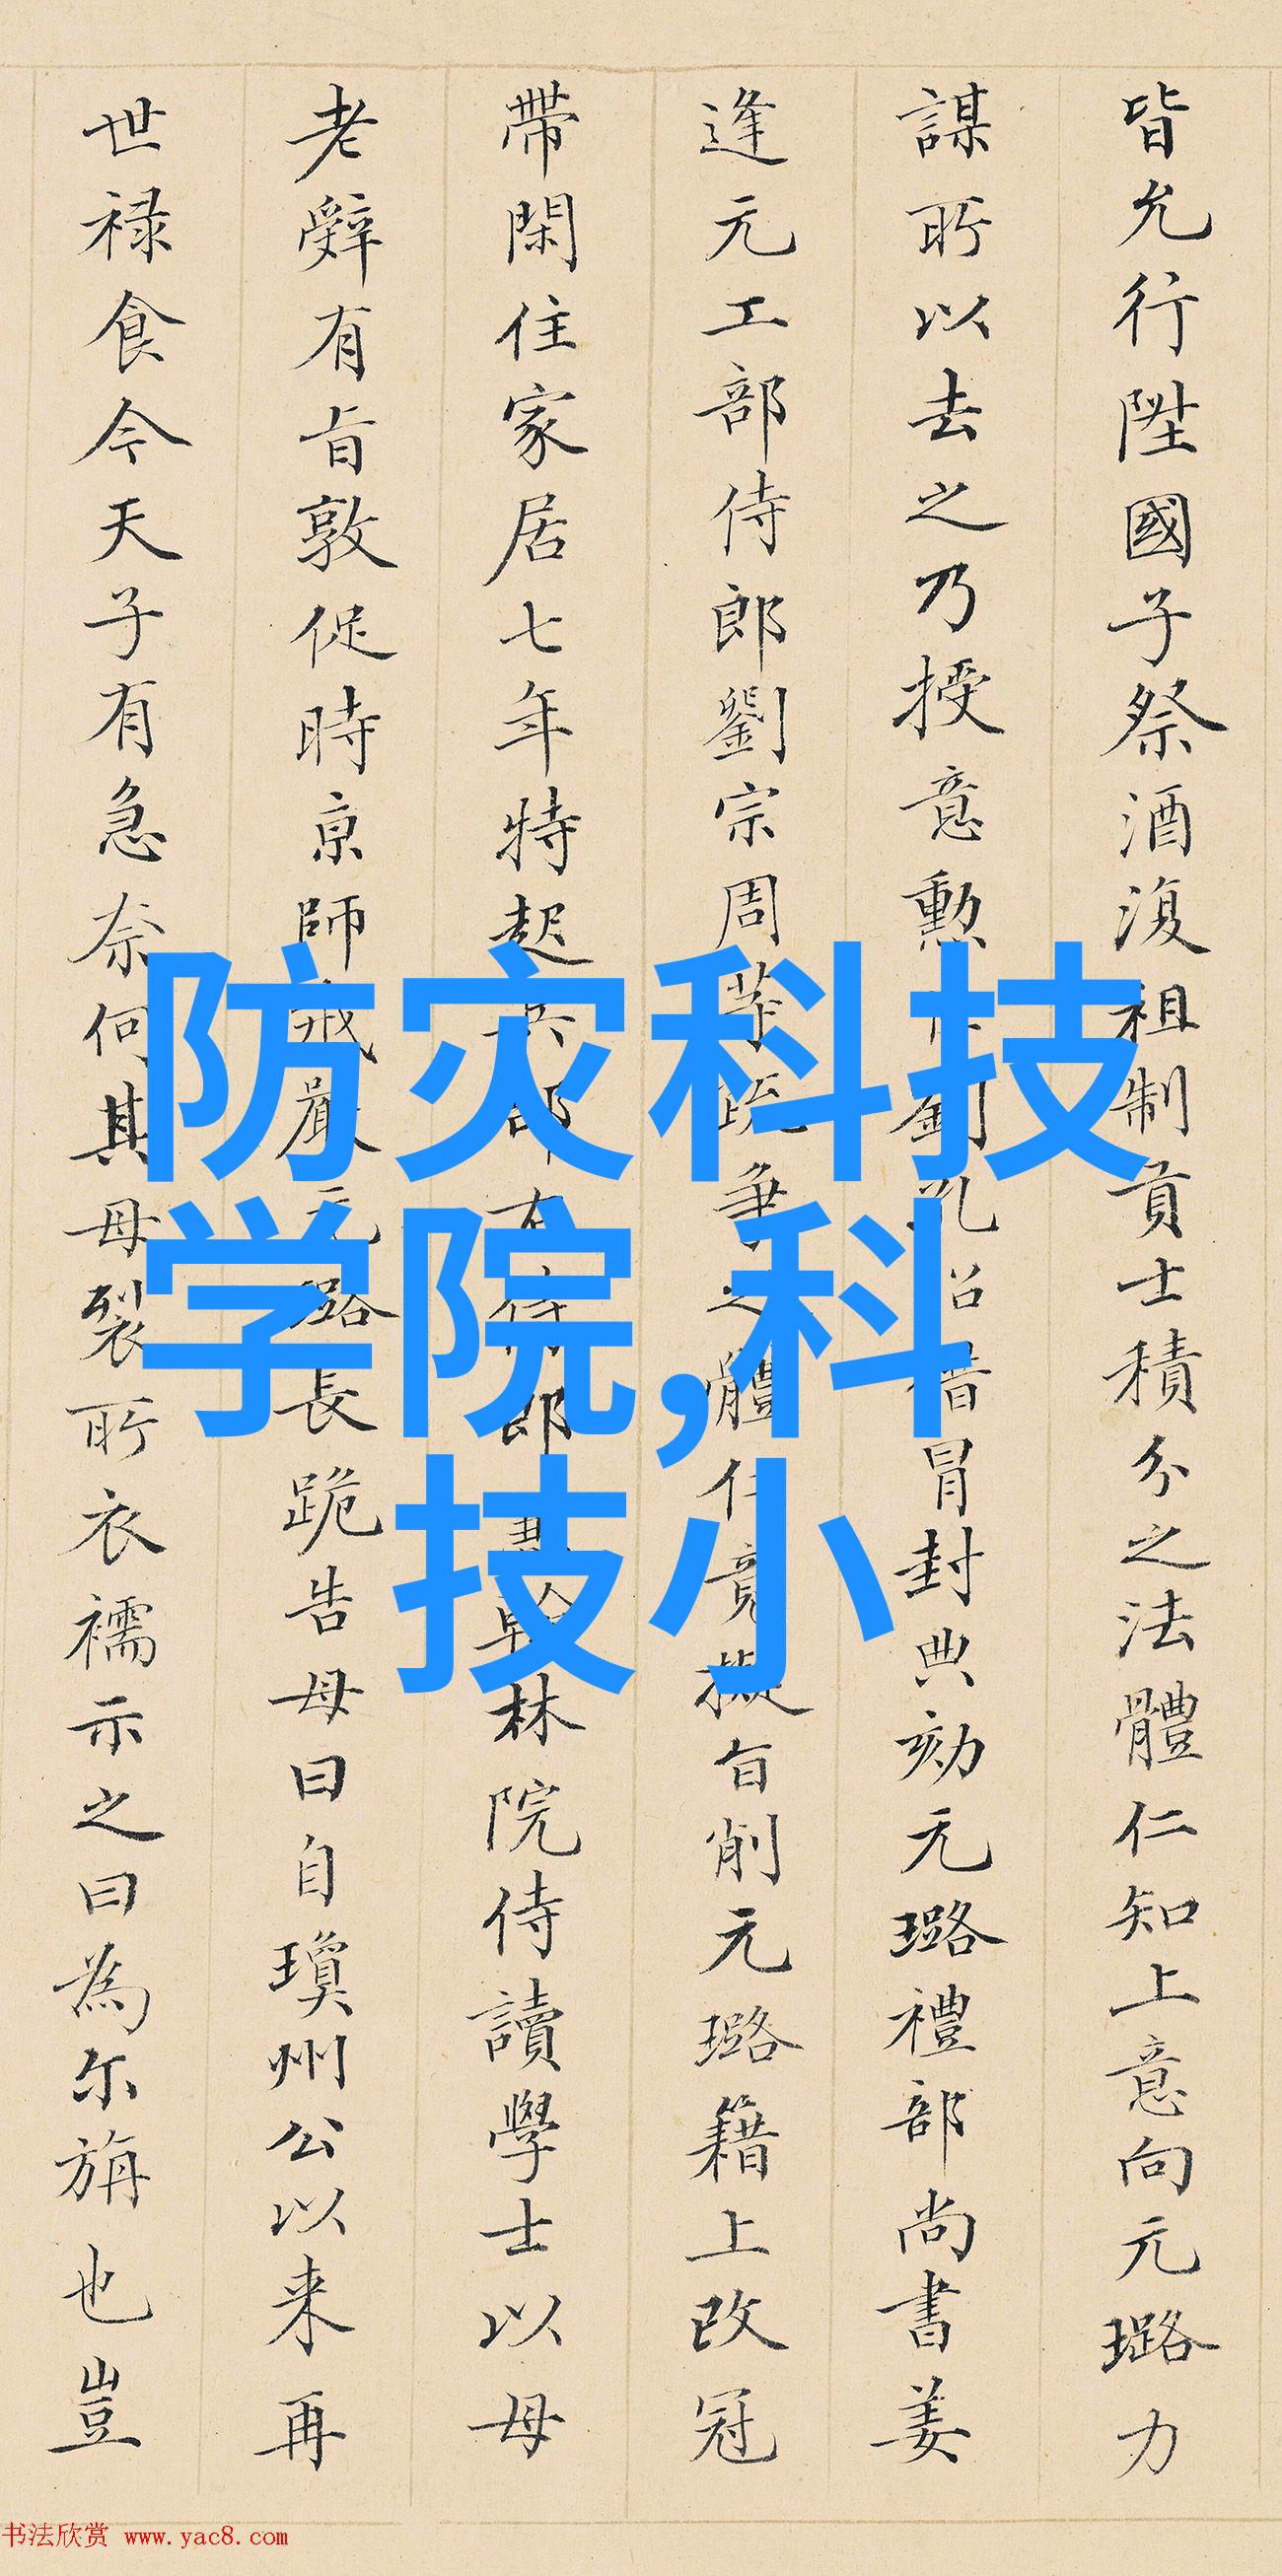 皆允行陞國子祭酒復祖制貢士積分之法體仁知上意向元璐力
謀所以去之乃授意勲劉孔昭借冒封典劾元璐禮部尚書姜
逢元工部侍郎劉宗周等疏爭之體仁竟擬旨削元璐籍上改冠
帶閑住家居七年特起兵部右侍郎兼翰林院侍讀學士以母
老辭有旨敦促時京師戒嚴元璐長跪告母曰自瓊州公以来再
世禄食今天子有急奈何其母裂所衣襦示之曰為尔旃也豈
防灾科技
学院,科
技小
书法欣赏 www.yac8.com